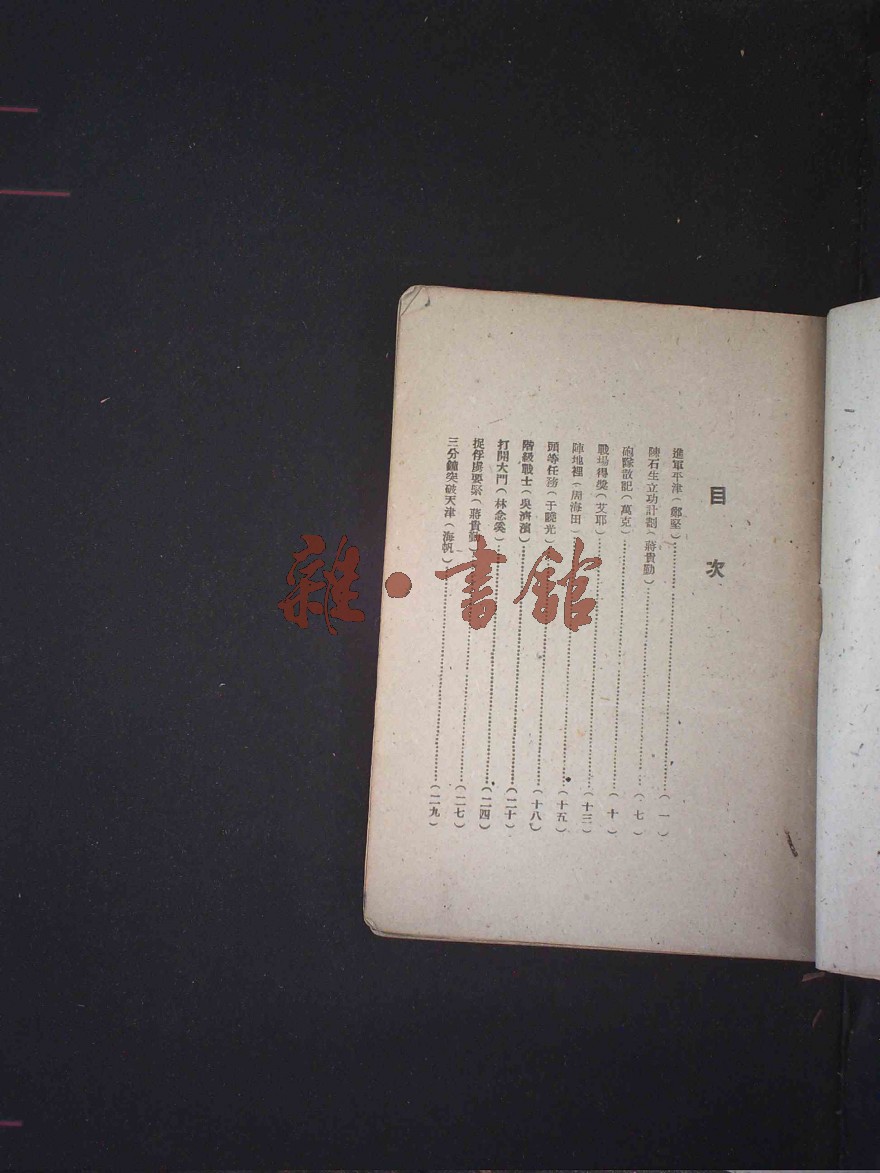 目次
進軍平津(鄭堅)……(一)
陳石生立功計劃(蔣貴勤)……(七)
砲隊散記(萬克)……(十)
戰場得獎(艾耶)……(十三)
陣地裡(周海田)……(十五)
頭等任務(于曉光)……(十八)
階級戰士(吳濟濱)……(二十)
打開大門(林念奚)……(二四)
捉俘虜要緊(蔣貴勤)……(二七)
三分鐘突破天津(海帆)……(二九)
雜·書館